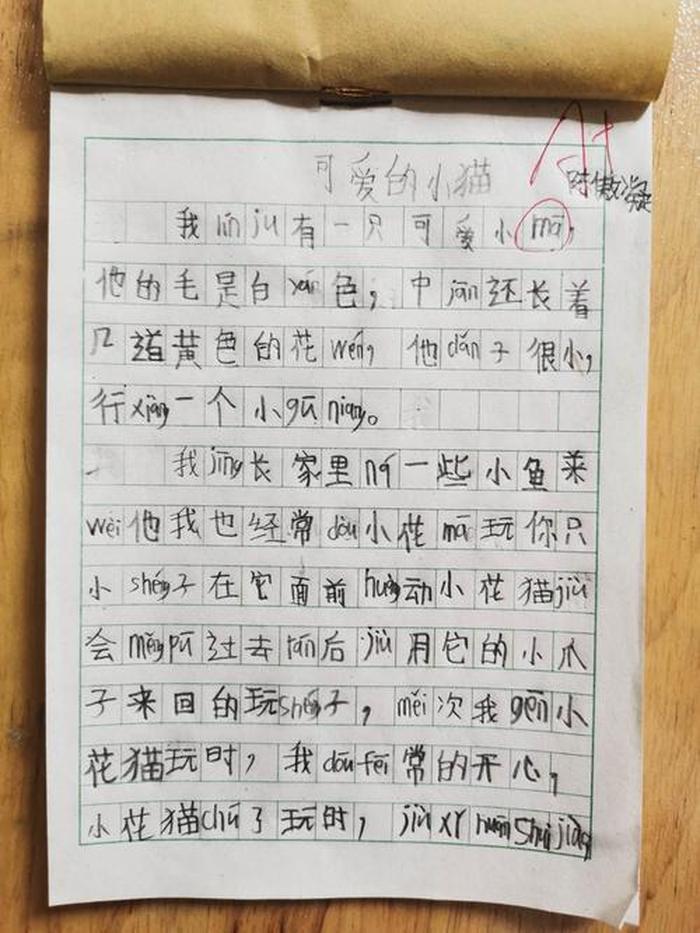 A+
可爱的小猫
陈傲凝
我lín jū有一只可爱小māo,
他的毛是白yán色,中jiān还长着
几道黄色的花wén,他dǎn子很小,
行xiàng一个小gū niang。
我jīng长家里ná一些小鱼来
wèi他我也经常dòu小花māo玩你只
小shéng子在它面前huàng动小花猫jiù
会měng pū过去rán后jiù用它的小爪
子来回的玩shéng子,měi次我gēn小
花猫玩时,我dōu fēi常的开心,
小花猫chú了玩时,jiù xǐ huān shuì jiào